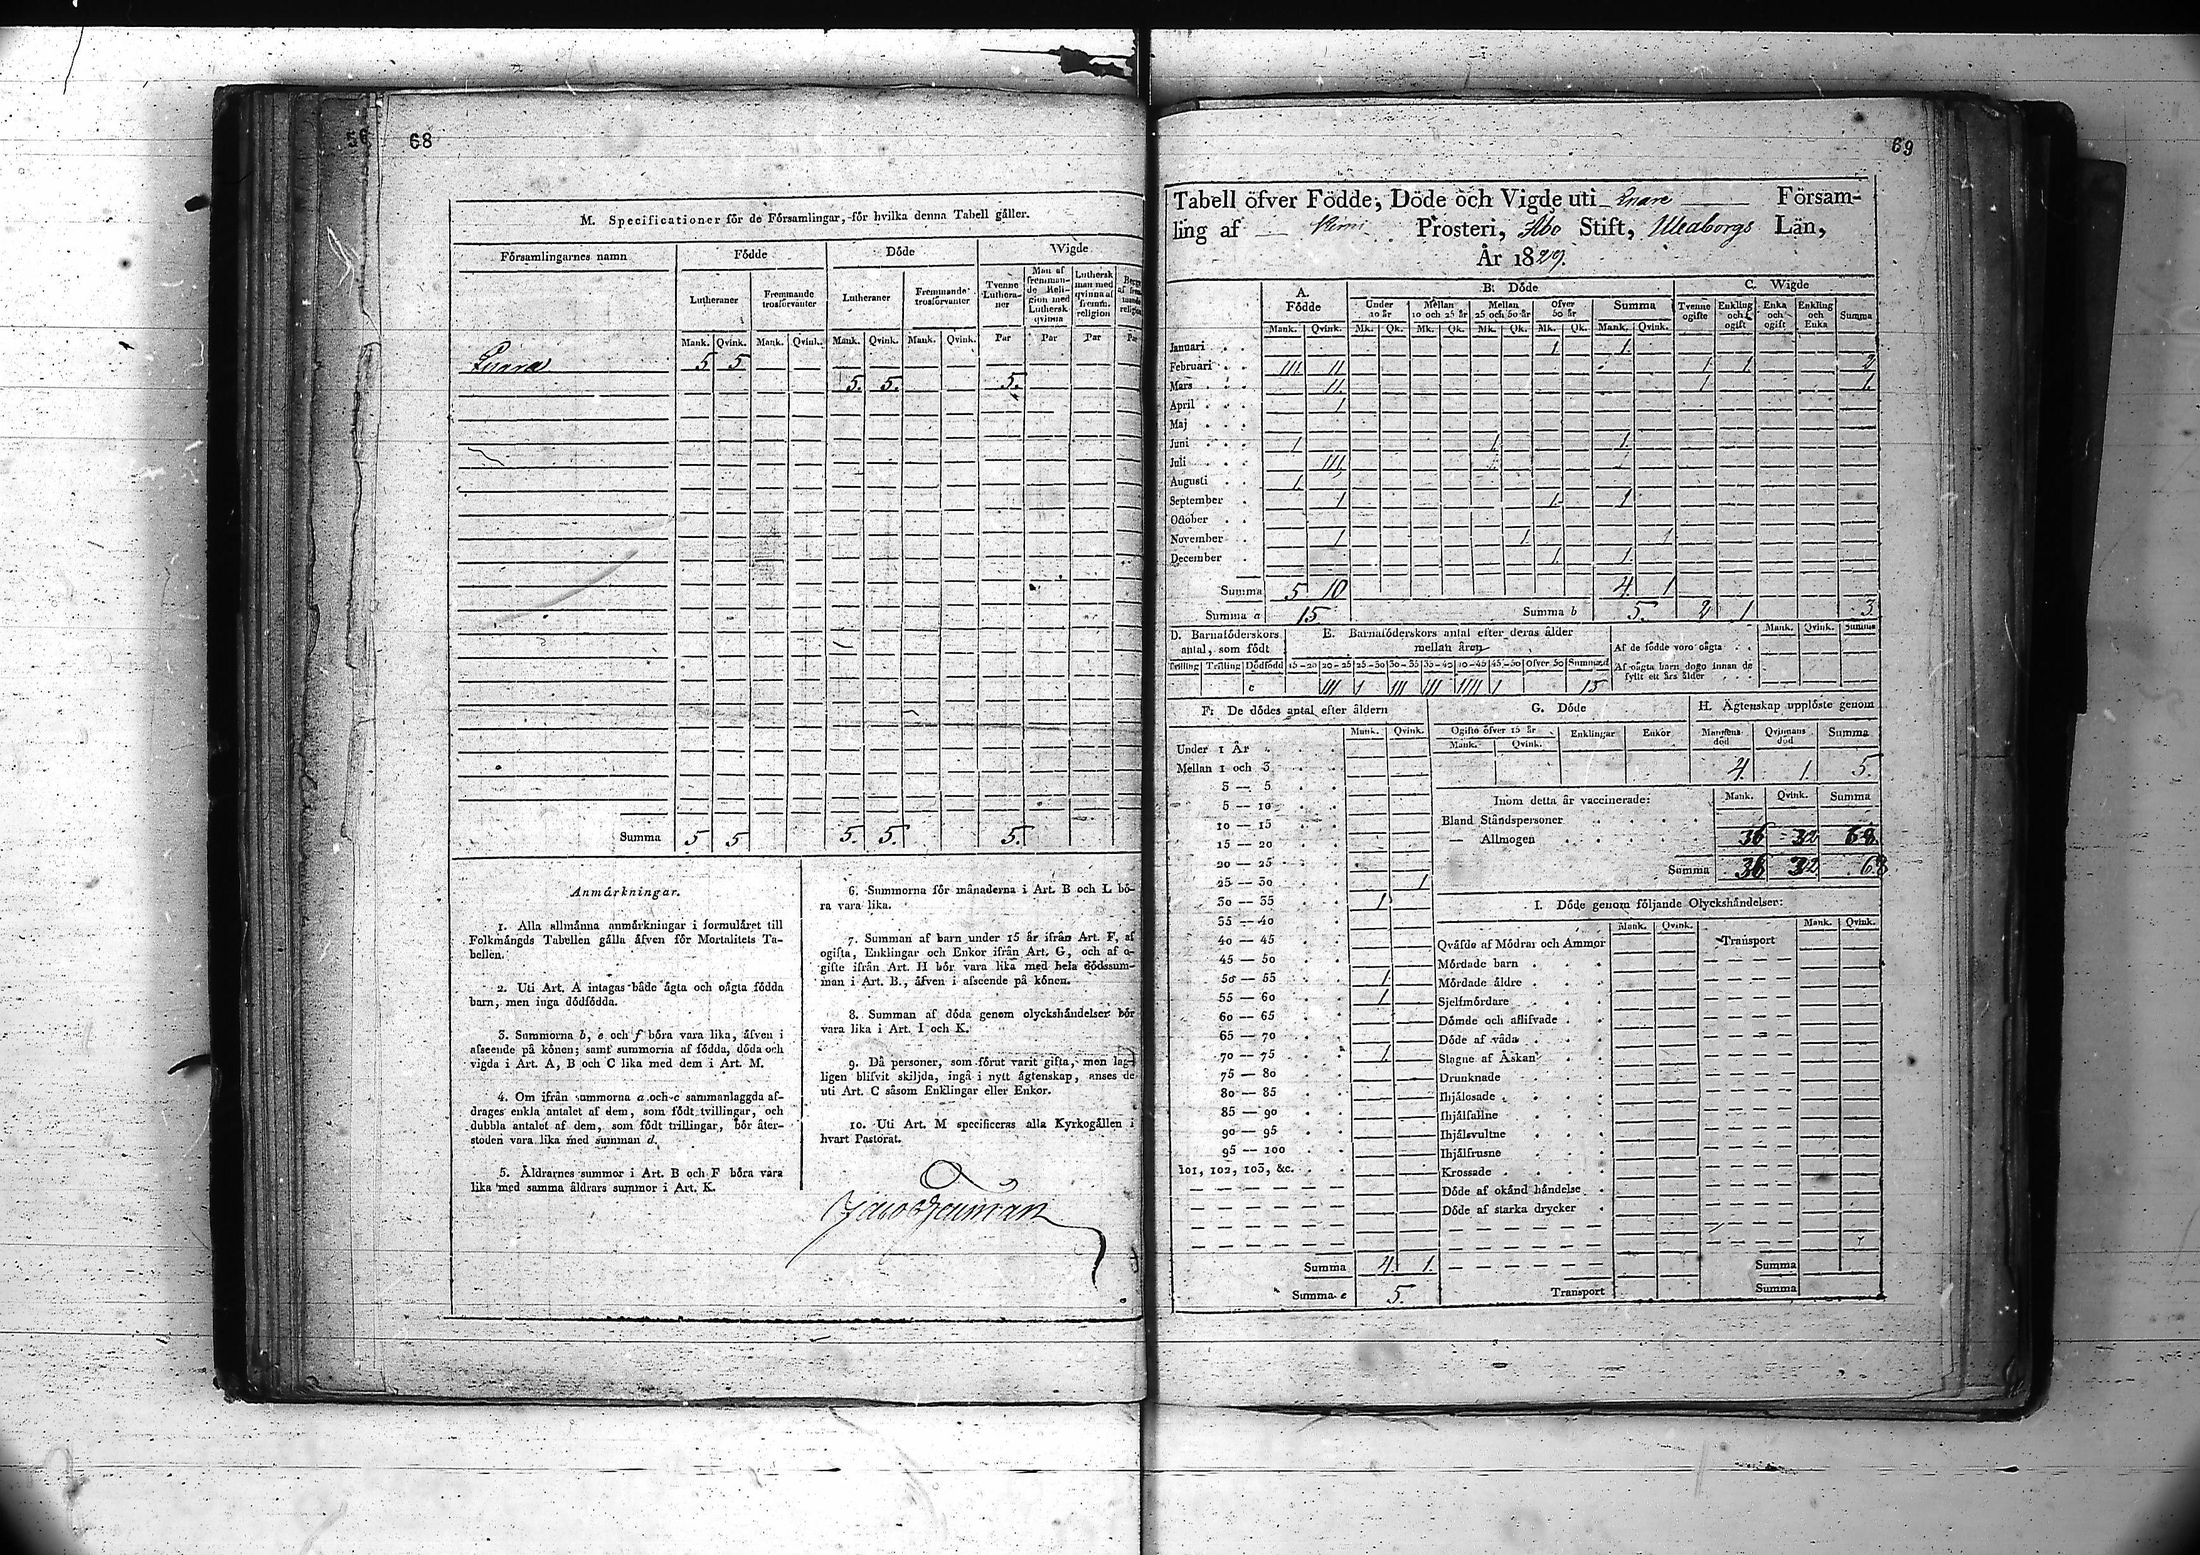 56 68
M. Specificationer för de Församlingar, för hvilka denna Tabell gäller.
Församlingarnes namn Födde Döde Wigde
Lutheraner Fremmande trosförvanter Lutheraner Fremmande trosförvanter Tvenne Lutheraner Man af fremmande Religion med Luthersk qvinna Luthersk man med qvinna af fremm. religion
Mank. Qvink. Mank. Qvink. Mank. Qvink. Mank. Qvink. Par Par Par Par
Enare 5 5
5. 5. 5.
Summa 5 5 5. 5. 5.
Anmärkningar.
1. Alla allmänna anmärkningar i formuläret till
Folkmängds Tabellen gälla äfven för Mortalitets Ta-
bellen.
2. Uti Art. A intagas både ägta och oägta födda
barn, men inga dödfödda.
3. Summorna b, e och f böra vara lika, äfven i
afseende på könen; samt summorna af födda, döda och
vigda i Art. A, B och C lika med dem i Art. M.
4. Om ifrån summorna a och c sammanlaggda af-
drages enkla antalet af dem, som födt tvillingar, och
dubbla antalet af dem, som födt trillingar, bör åter-
stoden vara lika med summan d.
5. Åldrarnes summor i Art. B och F böra vara
lika med samma åldrars summor i Art. K.
6. Summorna för månaderna i Art. B och L bö-
ra vara lika.
7. Summan af barn under 15 år ifrån Art. F, af
ogifta, Enklingar och Enkor ifrån Art. G, och af o-
gifte ifrån Art. H bör vara lika med hela dödssum-
man i Art. B., äfven i afseende på könen.
8. Summan af döda genom olyckshändelser bör
vara lika i Art. I och K.
9. Då personer, som förut varit gifta, men lag-
ligen blifvit skiljda, ingå i nytt ägtenskap, anses de
uti Art. C såsom Enklingar eller Enkor.
10. Uti Art. M specificeras alla Kyrkogällen i
hvart Pastorat.
69
Tabell öfver Födde, Döde och Vigde uti Enare Försam-
ling af Kemi Prosteri, Åbo Stift, Uleaborgs Län,
År 1829.
A. Födde B. Döde C. Wigde
Under 10 år Mellan 10 och 25 år Mellan 25 och 50 år Öfver 50 år Summa Tvenne ogifte Enkling och ogift Enka och ogift Enkling och Enka Summa
Mank. Qvink. Mk. Qk. Mk. Qk. Mk. Qk. Mk. Qk. Mank. Qvink.
Januari 1 1.
Februari III II 1 1. 2
Mars II. 1 1.
April 1
Maj
Juni 1 1. 1
Juli III
Augusti 1.
September 1 1. 1
October
November 1 1. 1
December 1. 1.
Summa 5 10 4. 1
Summa a 15. Summa b 5. 2 1 3.
D. Barnaföderskors antal, som födt
Tvilling Trilling Dödfödd
c
E. Barnaföderskors antal efter deras ålder mellan åren
15-20 20-25 25-30 30-35 35-40 40-45 45-50 Öfver 50 Summa d
III 1 III III IIII 1 15
Mank. Qvink. Summa
Af de födde voro oägta
Af oägta barn dogo innan de
fyllt ett års ålder
F. De dödes antal efter åldern
Mank. Qvink.
Under 1 År
Mellan 1 och 3
3 — 5
5 — 10
10 — 15
15 — 20
20 — 25
25 — 30 1
30 — 35 1
35 — 40
40 — 45
45 — 50
50 — 55 1.
55 — 60 1.
60 — 65
65 — 70
70 — 75 1.
75 — 80
80 — 85
85 — 90
90 — 95
95 — 100
101, 102, 103, &c.
Summa 4. 1.
Summa e 5.
G. Döde
Ogifte öfver 15 år Enklingar Enkor
Mank. Qvink.
H. Ägtenskap upplöste genom
Mannens död Qvinnans död Summa
4. 1. 5.
Inom detta år vaccinerade: Mank. Qvink. Summa
Bland Ståndspersoner
— Allmogen 36 32 68.
Summa 36 32 68
I. Döde genom följande Olyckshändelser:
Mank. Qvink. Mank. Qvink.
Qväfde af Mödrar och Ammor Transport
Mördade barn
Mördade äldre
Sjelfmördare
Dömde och aflifvade
Döde af våda
Slagne af Åskan
Drunknade
Ihjälosade
Ihjälfallne
Ihjälsvultne
Ihjälfrusne
Krossade
Döde af okänd händelse
Döde af starka drycker
Summa
Transport Summa